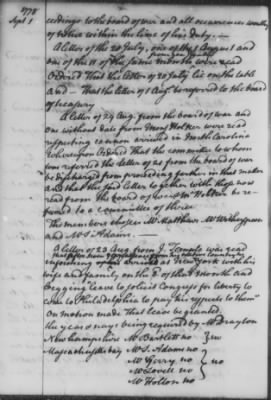 1778
Sept 1
ceedings to the board of war and all occurrences worthy
of notice within the line of his duty. —
A letter of the 20 July, one of the 1 August and
one of the 11 of the same month were read
Ordered That the letter of 20 July lie on the table
And — That the letter of 1 Augt be referred to the board
of treasury
A letter of 29 Aug. from the board of war and
one without date from Monsr Holker were read
respecting cannon arrived in North Carolina
Whereupon Ordered That the committee to whom
was referred the letter of 28 from the board of war
be discharged from proceeding farther in that matter
and that the said letter together with those now
read from the board of war & Mr Holker be re-
ferred to a committee of three
The members chosen Mr Matthews Mr Witherspoon
and Mr S. Adams. —
A letter of 23 Aug from J. Temple was read
informing at New York with his
wife and family on the 8 of that month and
begging "leave to solicit Congress for liberty to
come to Philadelphia to pay his respects to them"
On motion made that leave be granted,
the yeas & nays being required by Mr Drayton
New hampshire Mr Bartlett no } no
Massachusetts bay Mr S. Adams no
Mr Gerry no
Mr Lovell no } no
Mr Holton no